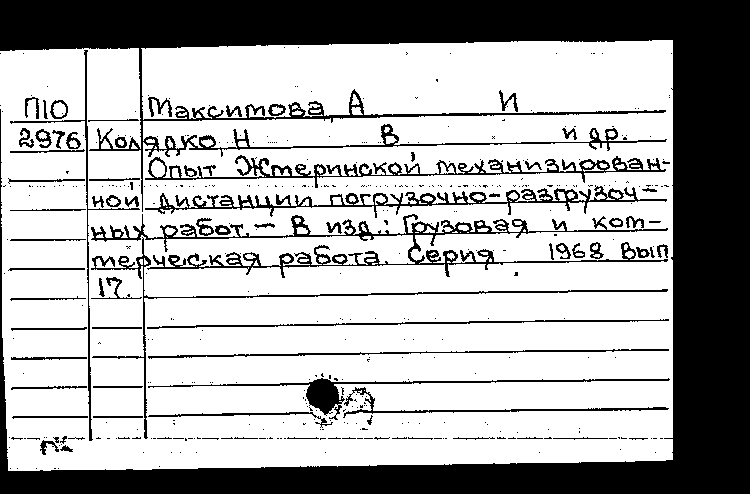 П10 Максимова, А И
2976 Колядко, Н В и др.
Опыт Жмеринской механизирован-
ной дистанции погрузочно-разгрузоч-
ных работ. - В изд.: Грузовая и ком-
мерческая работа. Серия 1968 Вып.
17.